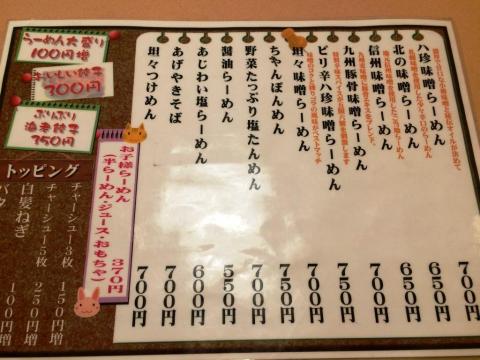 八珍味噌らーめん 700円
北の味噌らーめん 650円
信州味噌らーめん 650円
九州豚骨味噌らーめん 700円
ピリ辛八珍味噌らーめん 750円
坦々味噌らーめん 700円
ちゃんぽんめん 750円
野菜たっぷり塩たんめん 700円
醤油らーめん 550円
あじわい塩らーめん 600円
あげやきそば 700円
坦々つけめん 700円
らーめん大盛り
100円増
おいしい餃子
300円
ぷりぷり
海老餃子
350円
お子様らーめん 370円
(半らーめん・ジュース・おもちゃ)
トッピング
チャーシュー3枚 150円増
チャーシュー5枚 250円増
白髪ねぎ 100円増
バタ